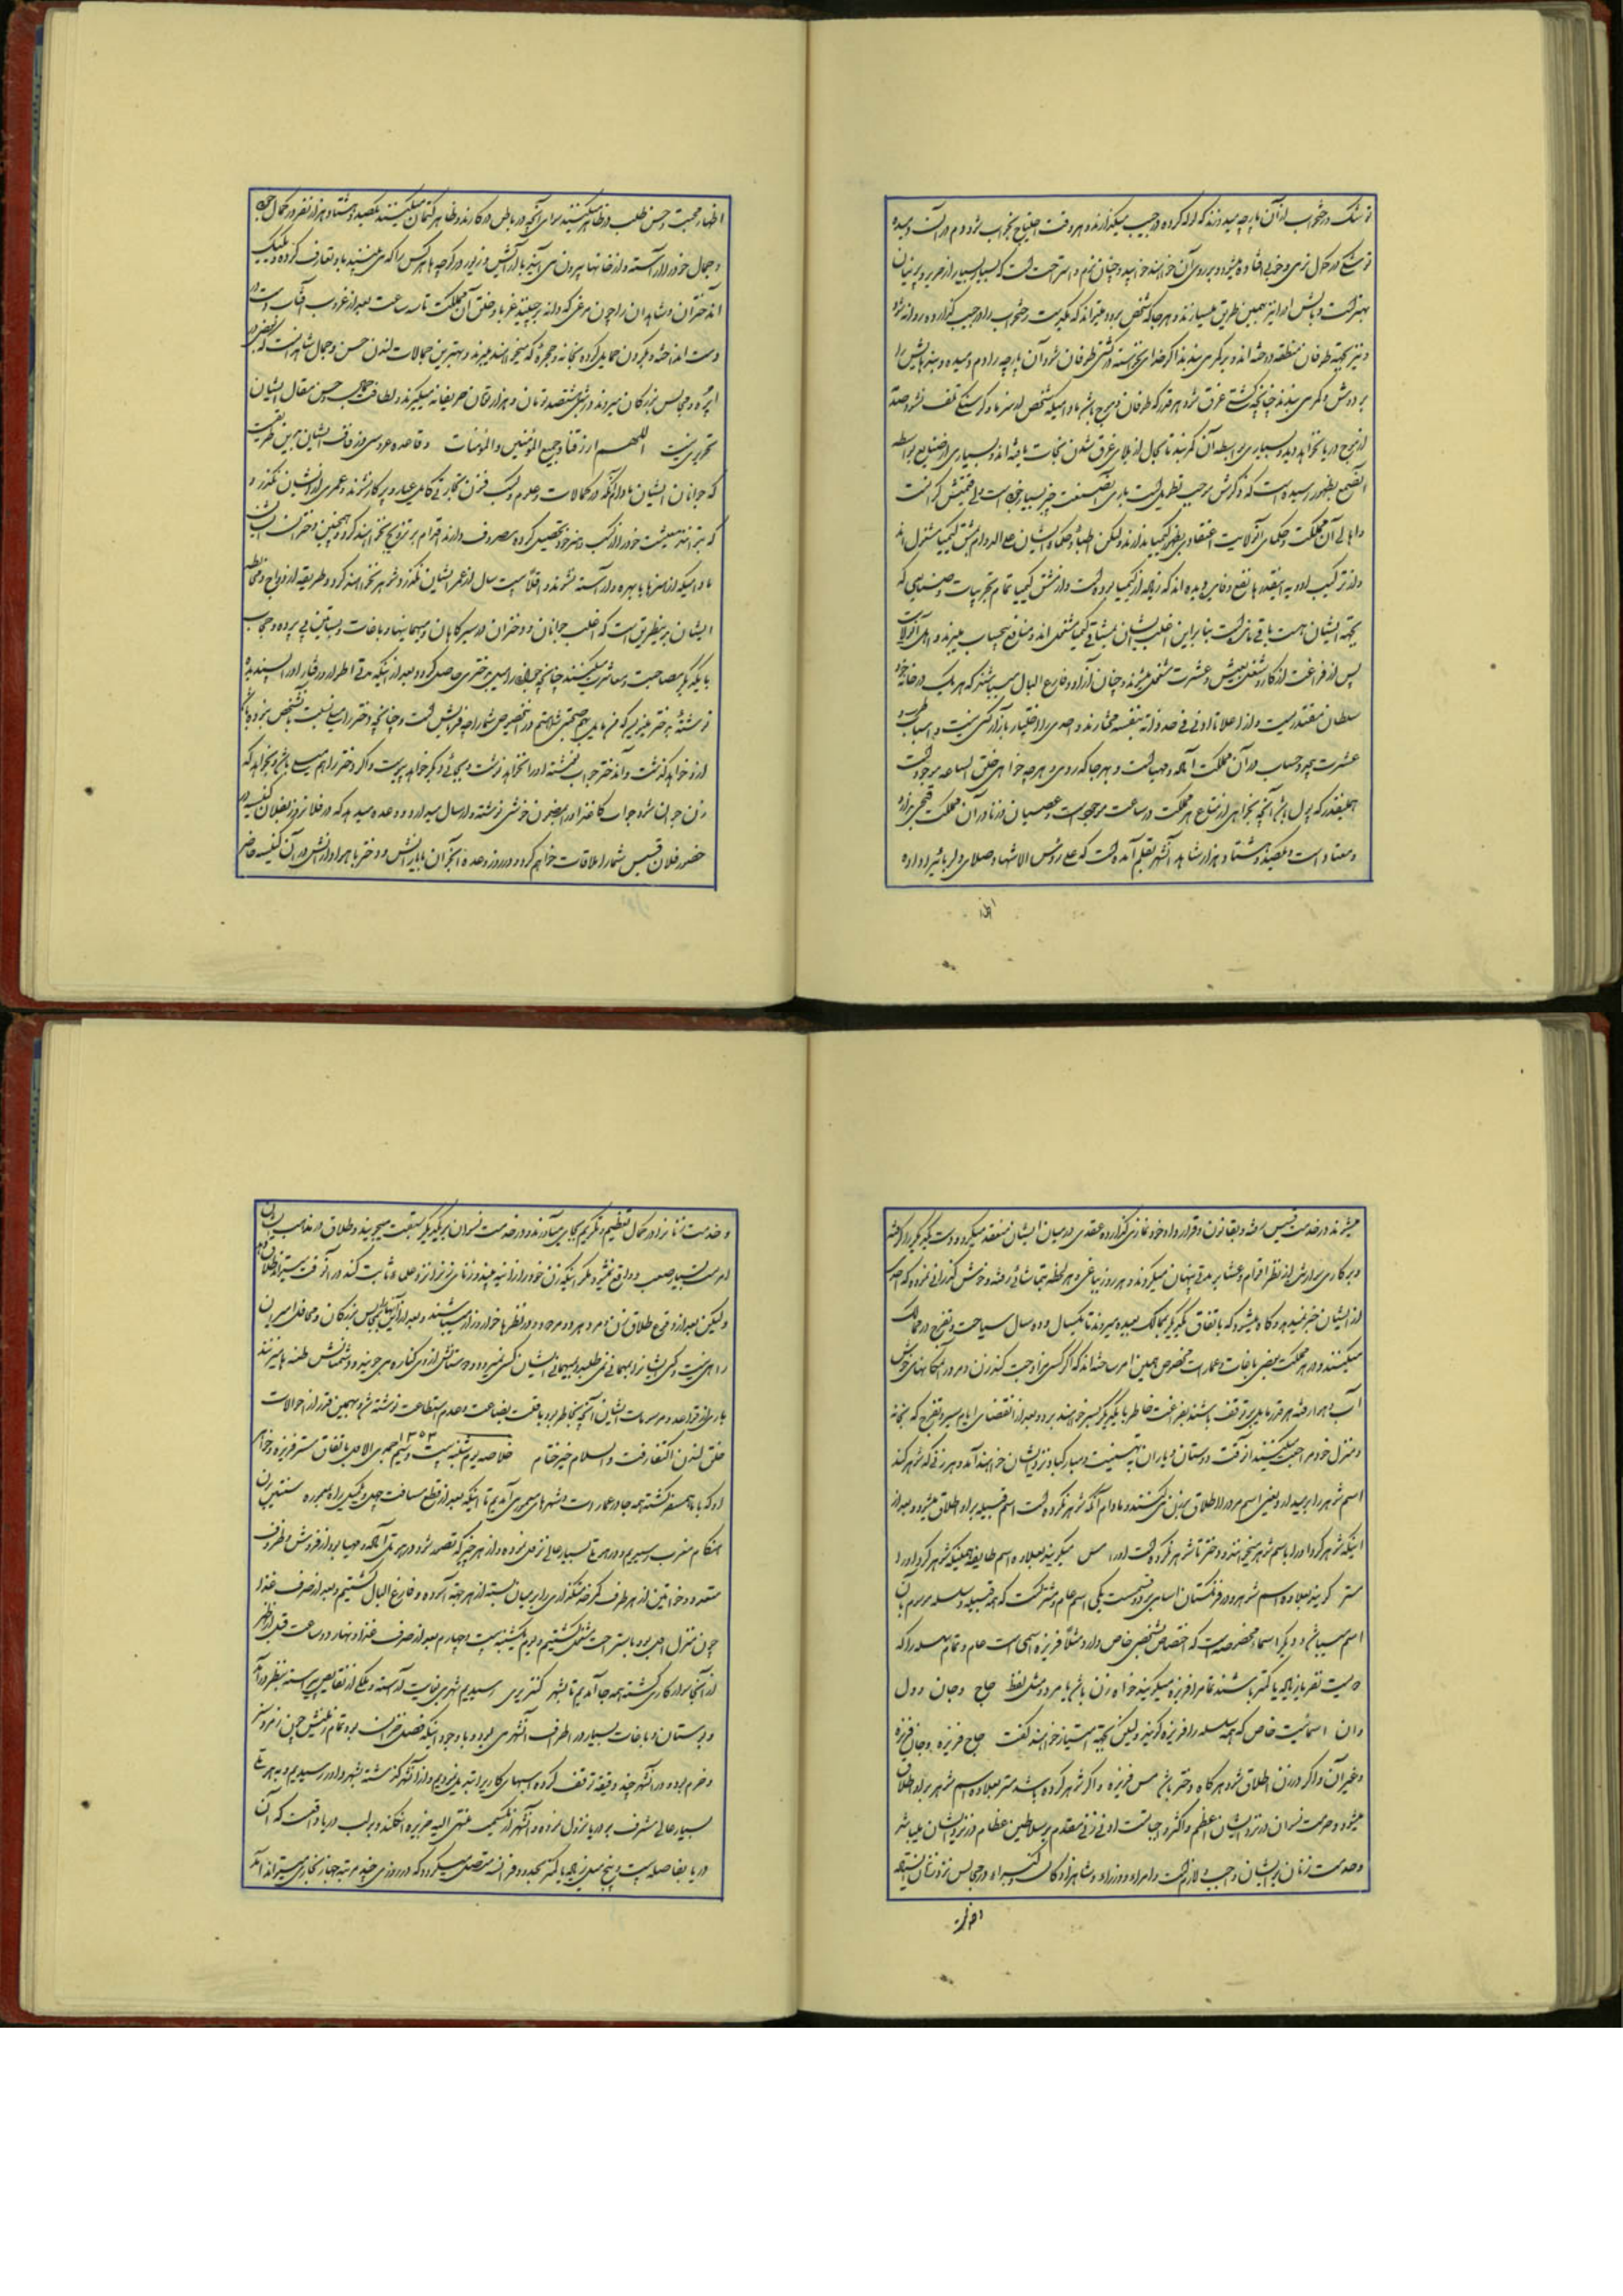 توشک و رختخواب از آن پارچه میدوزند که لوله کرده در جیب میگذارند و هر وقت احتیاج بخواب شود دم در آن دمیده
توشکی در کمال نرمی و خوبی افتاده میشود و بر روی آن خواهند خوابید و چنان نرم و استراحت است که بسیار بسیار از حریر و پرنیان
بهتر است و بالش او را نیز بهمین طریق میسازند و هر جا که شخص برود میتواند که یکدست رختخواب را در جیب گذارده روانه شود
و نیز بجهة طوفان منطقه دوخته اند و بر کمر می بندند اگر خدای نخواسته در کشتی طوفان شود آن پارچه را دم دمیده و بند هایش را
بر دوش و کمر می بندند چنانچه کشتی غرق شود هر قدر که طوفان و موج باشد مادامیکه شخص از سرما و گرسنگی تلف نشود صدمه
از موج دریا نخواهد دید و بسیاری بواسطه آن کمربند تا بحال از بلای غرق شدن نجات یافته اند و بسیاری از صنایع بواسطه
آن صمغ بظهور رسیده است که ذکرش موجب تطویل است باری آن صنعت چیز بسیار خوبی است ولی قیمتش گران است
و اهالی آن مملکت و حکمای آن ولایت اعتقادی بظهور کیمیا ندارند ولیکن اطبا و حکماء ایشان علی الدوام بمشق کیمیا مشغول اند
و از ترکیب ادویه اینقدرها نفع و فایده دیده اند که زیاده از کیمیا بوده است و از مشق کیمیا تمام تجربیات و صنایعی که
بجهة ایشان هست باقی مانده است بنابراین اغلب ایشان بمشاقی کیمیا مشغول اند و منافع بیحساب میبرند و اهل آن ولایت
پس از فراغت از کار و شغل بعیش و عشرت مشغول میشوند و چنان آزاد و فارغ البال میباشند که هر یک در خانه خود
سلطان مقتدریست و از اعلا تا ادنی فی حد ذاته بنفسه مختارند و احدی را اختیار بازار کسی نیست و اسباب طرب و
عشرت بیحد و حساب در آن مملکت آماده و مهیا است و بهر جا که روی و هر چه خواهی خلق الساعه موجود است
همینقدر که پول باشد آنچه بخواهی از متاع هر مملکت در ساعت موجود است و عصیان و زنا در آن مملکت قبحی ندارد
و معتاد است و یکصد و هشتاد هزار شاهد آن شهر بقلم آمده است که علی رؤس الاشهاد صلای دلربائی در داده
اظهار
اظهار محبت و حسن طلب در ظاهر میکنند سوای آنچه در باطن در کارند و ظاهر کتمان میکنند یکصد و هشتاد هزار نفر در کمال خوبی
و جمال خود را آراسته و از خانها بیرون می آیند با آرایش و زیور در کوچه ها هر کس را که می بینند باو تعارف کرده و یک یک
آن دختران و شاهدان را چون مرغی که دانه برچیند غربا و خلق آن مملکت تا سه ساعت بعد از غروب آفتاب دست در
دست انداخته و بگردن حمایل کرده بخانه و حجره که میخواهند میبرند و بهترین جمالات لندن حسن و جمال شاهدانست که بعضی در
اپره و مجالس بزرگان میروند و در شبی ششصد تومان و هزار تومان حریفانه میگیرند و لطافت جمال و حسن مقال ایشان
تحریری نیست اللهم ارزقنا و جمیع المؤمنین والمؤمنات و قاعده عروسی و زفاف ایشان بدین طریقست
که جوانان ایشان مادام آنکه در کمالات و علوم و کسب فنون تجارتی کامل عیار و پرکار نشوند و عمری از ایشان نگذرد و
که بتوانند معیشت خود را از کسب و هنر خود تحصیل کرده مصروف دارند اقدام بر تزویج نخواهند کرد و همچنین دختران ایشان
مادامیکه از هنرها با بهره و آراسته نشوند و اقلا بیست سال از عمر ایشان نگذرد شوهر نخواهند کرد و طریقه ازدواج و مخالطه
ایشان بدینطریق است که اغلب جوانان و دختران در سیرگاهان و مهمانیها و باغات و بساتین بی پرده و حجاب
با یکدیگر مصاحبت و معاشرت میکنند چنانچه جوان را میل بدختری حاصل گردد و بعد از اینکه مدتی اطوار و رفتار او را پسندیده
نوشته بدختر میفرستد که من مایل بصحبت شما هستم در این خصوص شما را چه فرمایش است و چنانچه دختر را میل نسبت بآن شخص نبوده باشد
ازو خواهد گذشت و آن دختر جواب نوشته او را نخواهد نوشت و بجائی دیگر خواهد پیوست و اگر دختر را هم میلی باشد و بخواهد که
زن جوان شود جواب کاغذ او را بمضمون خوشی نوشته و ارسال میدارد و وعده میدهد که در فلان روز بفلان کنیسه در
حضور فلان قسیس شما را ملاقات خواهم کرد و در روز وعده آن جوان با یارانش و دختر با همراهانش در آن کنیسه حاضر
میشوند در خدمت قسیس رفته و بقانون و قرارداد خود نمازی گذارده عقدی در میان ایشان منعقد میگردد و دست یکدیگر را گرفته
و بر کالسکه سوار شده از نظر اقوام و عشایر مدتی پنهان میگردند و هر روز بباغی و هر لحظه بتماشائی رفته و خوش گذرانی نموده که احدی
از ایشان خبر نمیدهد و گاه میشود که باتفاق یکدیگر بممالک بعیده میروند تا یکسال و دو سال سیاحت و تفرج در ممالک
میکنند و در هر مملکت بعضی باغات و عمارات مخصوص همین امر ساخته اند که اگر کسی مزاوجت کند زن و مرد در آن مکانهای خوش
آب و هوا رفته هر قدر مایل بتوقف باشند بفراغت خاطر با یکدیگر بسر خواهند برد و بعد از انقضای ایام سیر و تفرج که بخانه
و منزل خود مراجعت میکنند آنوقت دوستان و یاران به تهنیت و مبارکباد نزد ایشان خواهند آمد و هر زنی که شوهر کند
اسم شوهر را بر میدارد یعنی اسم مرد را اطلاق بر زن میکنند و مادام آنکه شوهر نکرده است اسم قبیله بر او اطلاق میشود و بعد از
اینکه شوهر کرد او را باسم شوهر میخوانند و دختر تا شوهر نکرده است او را مس میگویند بعلاوه اسم طایفه و همینکه شوهر کرد او را
مستر گویند بعلاوه اسم شوهر و در فرنگستان اسامی بر دو قسمت یکی اسم عام و مشترکست که همه قبیله و سلسله موسوم بآن
اسم میباشند و دیگر اسماء مخصوصه است که اختصاص بشخص خاص دارد مثلا فریزه اسمی است عام و تمام سلسله را که
دویست نفر یا زیاده یا کمتر باشند تماما فریزه میگویند خواه زن باشد یا مرد و مثل لفظ جاج و جان و ول
و ان اسمائیست خاص که همه سلسله را فریزه گویند ولیکن بجهة امتیاز خواهند گفت جاج فریزه و جان فریزه
و غیر آن و اگر در زن اطلاق شود هر گاه دختر باشد مس فریزه و اگر شوهر کرده باشد مستر بعلاوه اسم شوهر بر او اطلاق
میشود و حرمت نسوان در نزد ایشان اعظم و اکثر واجباتست ادنی زنی مقدم بر سلاطین عظام در نزد ایشان میباشد
و حرمت زنان بر ایشان واجب و لازم است و امراء و وزراء و شاهزادگان کبراء در مجالس نزد زنان ایستاده
و خدمت
و خدمت زنان را در کمال تعظیم و تکریم بجا می آورند و در خدمت نسوان بر یکدیگر سبقت میجویند و طلاق در مذهب ایشان
امریست بسیار صعب و واقع نمیشود مگر اینکه زن خود را زانیه ببیند و زنای او نزد علما ثابت کند در آنوقت میتواند طلاق دهد
ولیکن بعد از وقوع طلاق زن و مرد هر دو مردود و در نظرها خوار و زار میباشند و بعد از این بمجلس بزرگان و محافل امیران
راهی نیست و کسی ایشان را بمهمانی نمی طلبد و بمهمانی ایشان کسی نمیرود و دوستانش از وی کناره می جویند و دشمنانش طعنه ها میزنند
باری از قواعد و مرسومات ایشان آنچه بخاطر بود با قلت بضاعت و عدم استطاعت نوشته شد و بهمین قدر از احوالات
خلق لندن اکتفا رفت والسلام خیر ختام خلاصه یوم شنبه بیست و سیم جمادی الاول ۱۲۵۳ باتفاق مستر فریزه و خواهر
او که با ما همسفر گشته همه جا در عمارات و شهرهای معموره می آمدیم تا اینکه بعد از قطع مسافت چهل و یک میل راه بمعموره سنتین برن
هنگام مغرب رسیدیم و در هر هتل بسیار عالی نزول نموده و از هر چیز که تصور شود در هر هتل آماده و مهیا بود از فروش و ظروف
متعدد و خواتین از هر طرف کمر خدمتگذاری را بر میان بسته از هر جهة آسوده و فارغ البال گشتیم و بعد از صرف غذا
چون منزل اعلی بود باستراحت مشغول گشتیم و یوم یکشنبه بیست و چهارم بعد از صرف غذا و نهار دو ساعت قبل از ظهر
از آنجا سوار کالسکه گشته همه جا آمدیم تا بشهر کنتربری رسیدیم شهری بغایت آراسته و ملکی از نقایص پیراسته بنظر درآمد
و بوستان و باغات بسیار در اطراف آن شهر می بود و با وجود اینکه فصل خزان بود تمام زمینش چمن زمرد سبز
و خرم بوده در آن شهر چند دقیقه توقف کرده اسبهای کالسکه را تبدیل نمودیم و از آن شهر گذشته بشهر داور رسیدیم و به هتل
بسیار عالی مشرف بر دریا نزول نموده و آن شهر از یک سمت منتهی الیه جزیره انگلند و بر لب دریا واقعست که آن
دریا بفاصله بیست و پنج میل زیاده یا کمتر بحدود فرانسه متصل میگردد که در روزی چند مرتبه جهاز بخاری میتواند آمد